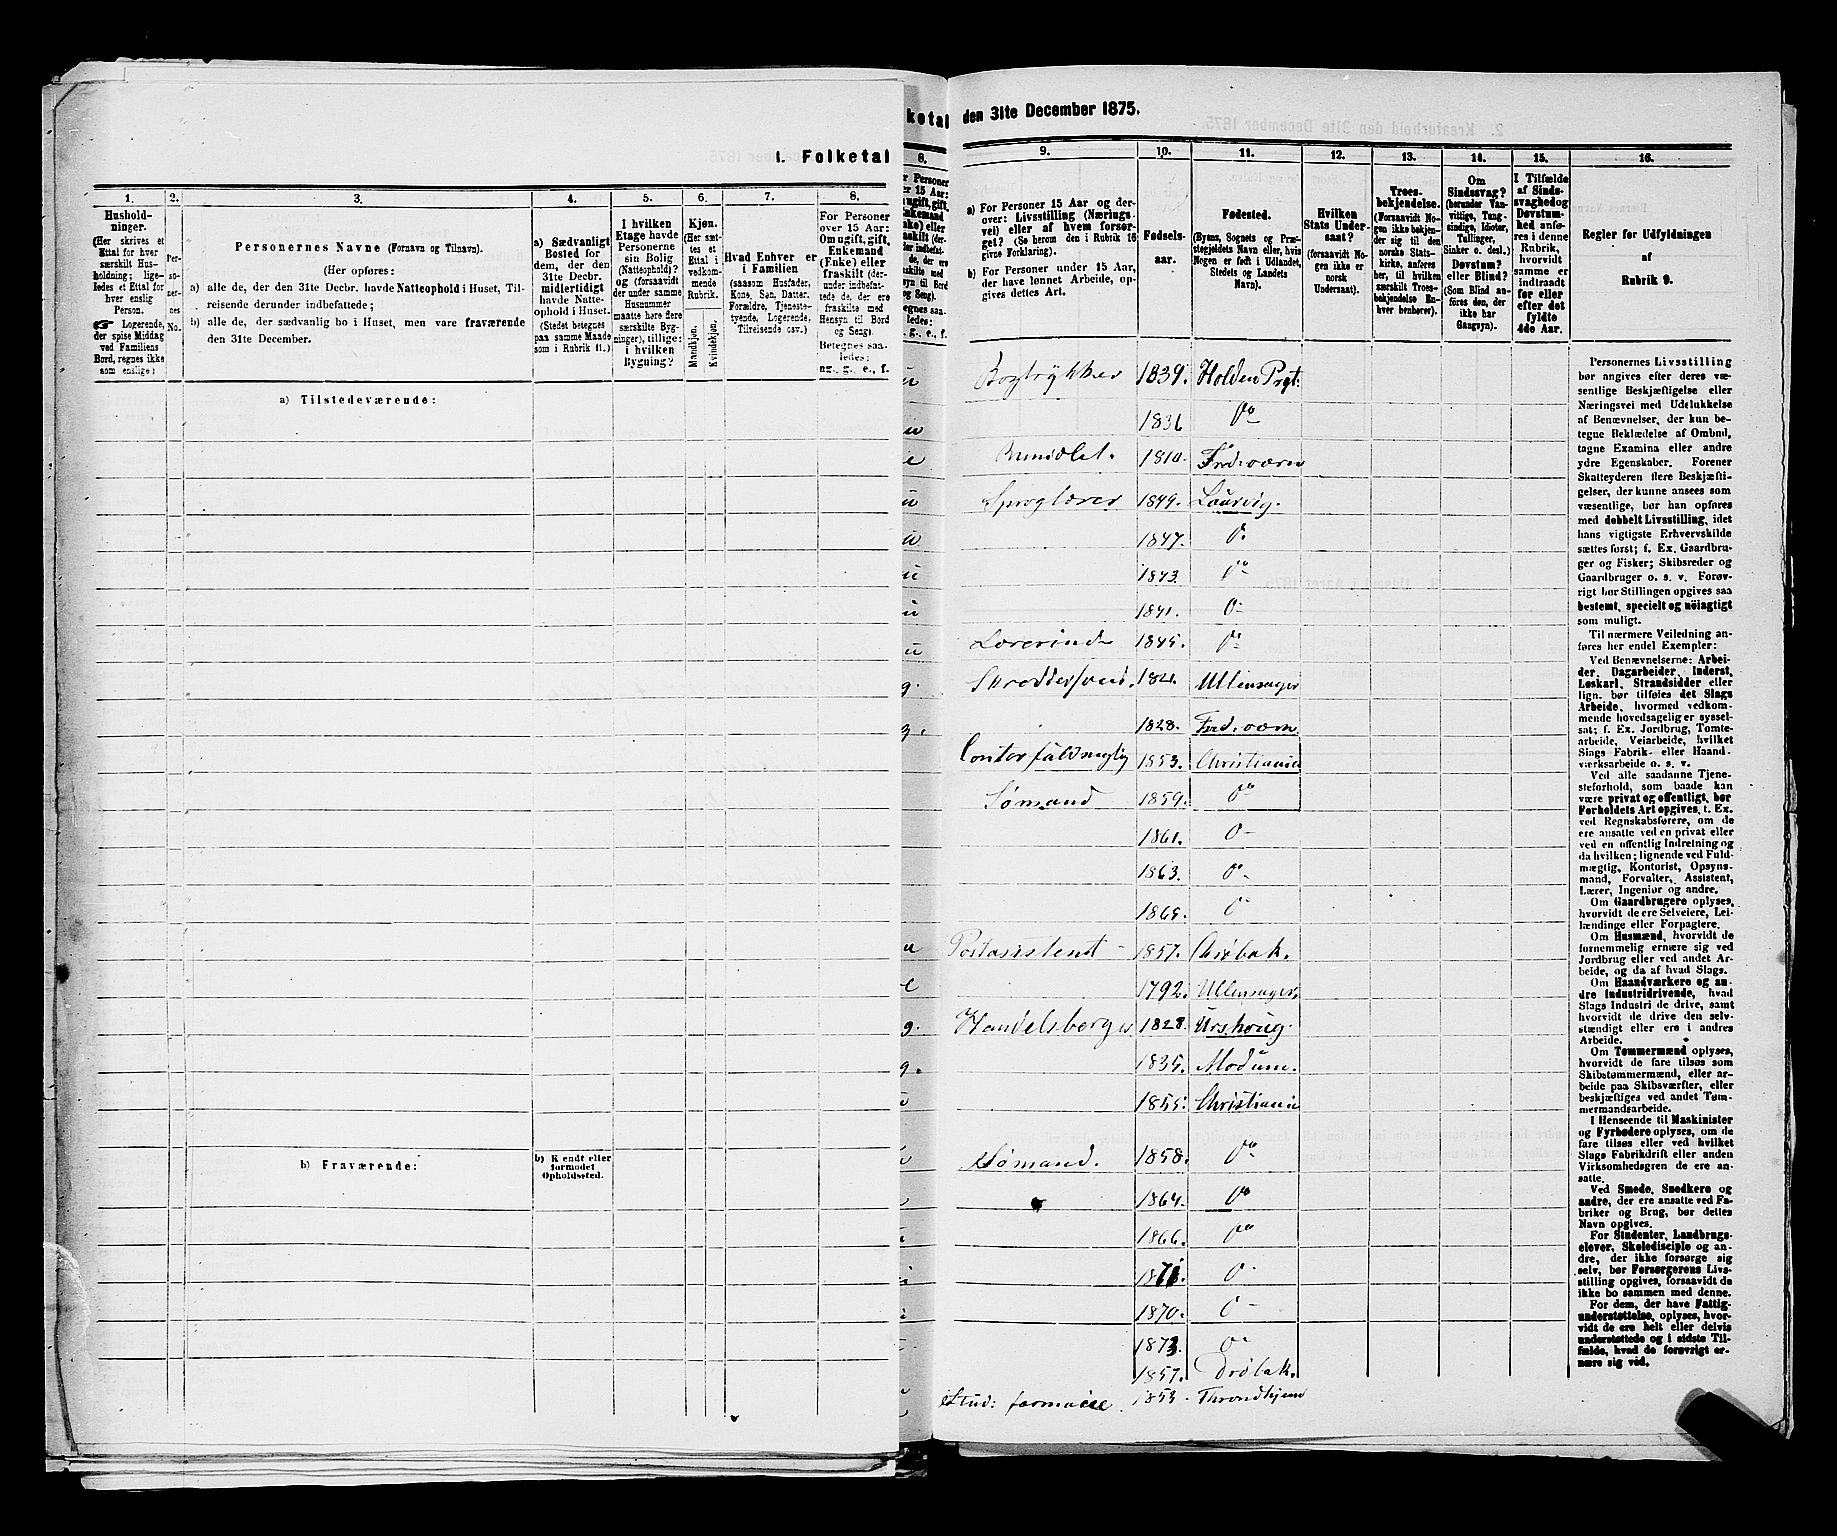 1. Folketal
1. 2. 3. 4. 5. 6. 7. 8.
Hushold-
ninger.
(Her skrives et
Ettal for hver
særskilt Hus-
holdning; lige-
ledes et Ettal for
hver enslig
Person.
Logerende,
der spise Middag
ved Familiens
Bord, regnes ikke
som enslige)
Per-
so-
ner-
nes
No.
Personernes Navne (Fornavn og Tilnavn).
(Her opføres:
a) alle de, der den 31te Decbr. havde Natteophold i Huset, Til-
reisende derunder indbefattede;
b) alle de, der sædvanlig bo i Huset, men vare fraværende
den 31te December.
a) Sædvanligt
Bosted for
dem, der den
31te Decbr.
midlertidigt
havde Natte-
ophold i Huset.
(Stedet betegnes
paa samme Maade
som i Rubrik 11.)
I hvilken
Etage havde
Personerne
sin Bolig
(Natteophold)?
og (forsaavidt
der under samme
Husnummer
maatte høre flere
særskilte Byg-
ninger), tillige:
i hvilken
Bygning?
Kjøn.
(Her sæt-
tes et
Ettal i
vedkom-
mende
Rubrik.
Mandkjøn.
Kvindekjøn.
Hvad Enhver er
i Familien
(saasom Husfader,
Kone, Søn, Datter.
Forældre, Tjeneste-
tyende, Logerende,
Tilreisende osv.)
For Personer
over 15 Aar:
Om ugift, gift,
Enkemand
(Enke) eller
fraskilt (der-
under indbefat-
tede de, der ere
fraskilte med
Hensyn til Bord
og Seng)
Betegnes saa-
ledes:
ug., g., e., f.
a) Tilstedeværende:
b) Fraværende:
b) Kjendt eller
formodet
Opholdssted.
ketal den 31te December 1875.
8. 9. 10. 11. 12. 13. 14. 15. 16.
a) For Personer 15 Aar og der-
over: Livsstilling (Nærings-
vei) eller af hvem forsør-
get? (Se herom den i Rubrik 16
givne Forklaring).
b) For Personer under 15 Aar,
der have lønnet Arbeide, op-
gives dettes Art.
Fødsels-
aar.
Fødested.
(Byens, Sognets og Præ-
stegjeldets Navn eller, hvis
Nogen er født i Udlandet,
Stedets og Landets
Navn).
Hvilken
Stats Under-
saat?
(forsaavidt No-
gen ikke er
norsk
Undersaat).
Troes-
bekjendelse.
(Forsaavidt No-
gen ikke bekjen-
der sig til den
norske Stats-
kirke, anføres
her, til hvilken
særskilt Troes-
bekjendelse En-
hver henhører).
Om
Sindssvag?
(herunder Van-
vittige, Tung-
sindige, Idioter,
Tullinger,
Sinker o. desl.)
Døvstum?
eller Blind?
(Som Blind an-
føres den, der
ikke har
Gangsyn).
I Tilfælde
af Sinds-
svaghed og
Døvstum-
hed anfø-
res i denne
Rubrik,
hvorvidt
samme er
indtraadt
før eller
efter det
fyldte
4de Aar.
Regler for Udfyldningen
af
Rubrik 9.
Bogtrykker 1839. Holden Prgt.
1836 Do
1810. Fred.værn
Sproglærer 1849. Laurvig.
1847. Do
1843 Do
1841. Do
Lærerinde 1845. Do
Skræddersvend. 1821. Ullensager
1828. Fred.værn
Contorfuldmægtig 1853. Christiania
Sømand 1859. Do
1861. Do
1863. Do
1869. Do
Postassistent 1857. Drøbak.
1792. Ullensager,
Handelsborger 1828. Urskoug.
1835. Modum.
1855. Christiania
Sømand. 1858. Do
1864. Do
1866. Do
1871. Do
1870. Do
1873 Do
1857. Drøbak.
Stud: farmacie. 1855. Throndhjem
Personernes Livsstilling
bør angives efter deres væ-
sentlige Beskjæftigelse eller
Næringsvei med Udelukkelse
af Benævnelser, der kun be-
tegne Beklædelse af Ombud,
tagne Examina eller andre
ydre Egenskaber. Forener
Skatteyderen flere Beskjæfti-
gelser, der kunne ansees som
væsentlige, bør han opføres
med dobbelt Livsstilling, idet
hans vigtigste Erhvervskilde
sættes først; f. Ex. Gaardbru-
ger og Fisker; Skibsreder og
Gaardbruger o. s. v. Forøv-
rigt bør Stillingen opgives saa
bestemt, specielt og nöiagtigt
som muligt.
Til nærmere Veiledning an-
føres her endel Exempler:
Ved Benævnelserne: Arbei-
der, Dagarbeider, Inderst,
Løskarl, Strandsidder eller
lign. bør tilføies det Slags
Arbeide, hvormed vedkom-
mende hovedsagelig er syssel-
sat; f. Ex. Jordbrug, Tomte-
arbeide, Veiarbeide, hvilket
Slags Fabrik- eller Haand-
værksarbeide o. s. v.
Ved alle saadanne Tjene-
steforhold, som baade kan
være privat og offentligt, bør
Forholdets Art opgives, t. Ex.
ved Regnskabsførere, om de
ere ansatte ved en privat eller
ved en offentlig Indretning og
da hvilken; lignende ved Fuld-
mægtig, Kontorist, Opsyns-
mand, Forvalter, Assistent,
Lærer, Ingeniør og andre.
Om Gaardbrugere oplyses,
hvorvidt de ere Selveiere, Lei-
lændinge eller Forpagtere.
Om Husmænd, hvorvidt de
fornemmelig ernære sig ved
Jordbrug eller ved andet Ar-
beide, og da af hvad Slags.
Om Haandværkere og an-
dre industridrivende, hvad
Slags Industri de drive, samt
hvorvidt de drive den selv-
stændigt eller ere i andres
Arbeide.
Om Tømmermænd oplyses,
hvorvidt de fare tilsøs som
Skibstømmermænd, eller ar-
beide paa Skibsværfter, eller
beskjæftiges ved andet Tøm-
mermandsarbeide.
I Henseende til Maskinister
og Fyrbødere oplyses, om de
fare tilsøs eller ved hvilket
Slags Fabrikdrift eller anden
Virksomhedsgren de ere an-
satte.
Ved Smede, Snedkere og
andre, der ere ansatte ved Fa-
briker og Brug, bør dettes
Navn opgives.
For Studenter, Landbrugs-
elever, Skoledisciple og an-
dre, der ikke forsørge sig
selv, bør Forsørgerens Livs-
stilling opgives, forsaavidt de
ikke bo sammen med denne.
For dem, der have Fattig-
understøttelse, oplyses, hvor-
vidt de ere helt eller delvis
understøttede og i sidste Til-
fælde, hvad de forøvrigt er-
nære sig ved.